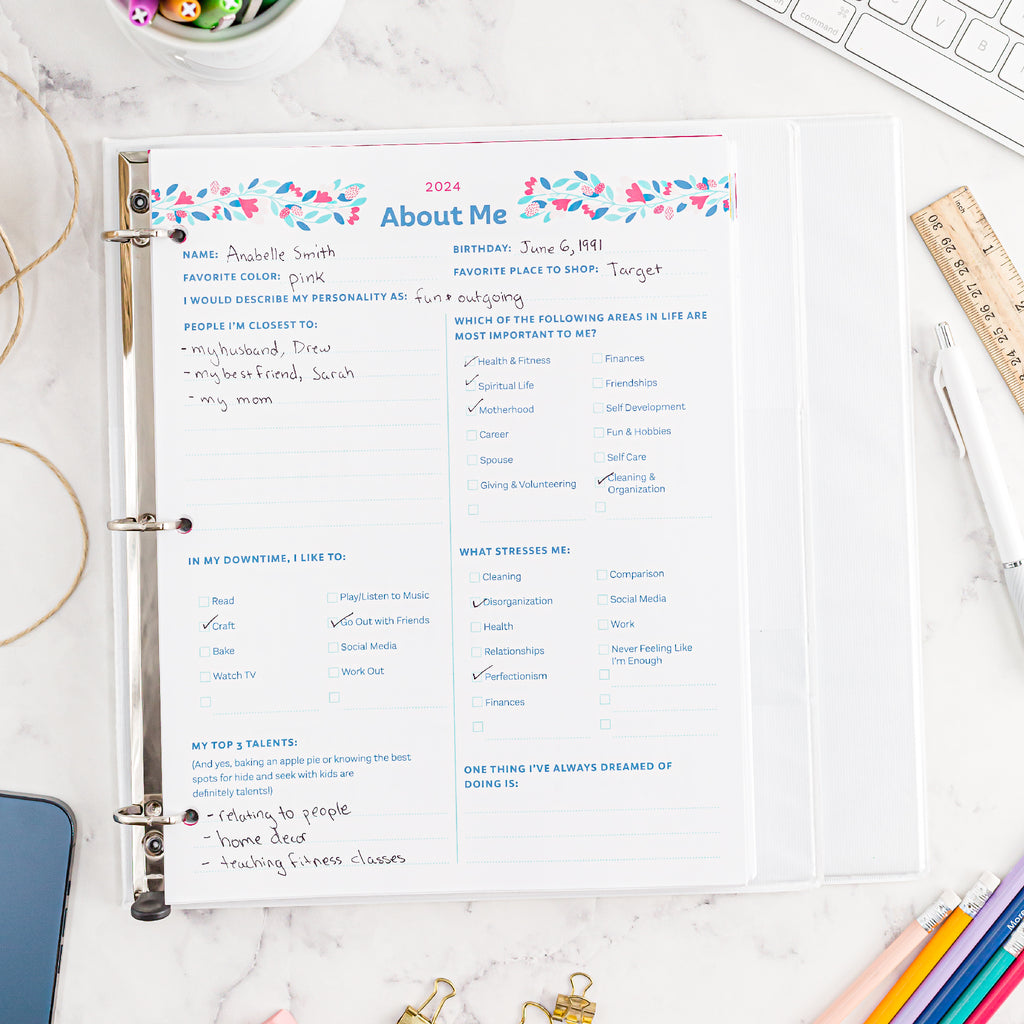 command
V
B
2024
About Me
NAME: Anabelle Smith
BIRTHDAY: June 6, 1991
FAVORITE COLOR: pink
FAVORITE PLACE TO SHOP: Target
I WOULD DESCRIBE MY PERSONALITY AS: fun + outgoing
PEOPLE I'M CLOSEST TO:
- my husband, Drew
- my best friend, Sarah
- my mom
WHICH OF THE FOLLOWING AREAS IN LIFE ARE
MOST IMPORTANT TO ME?
Health & Fitness
Finances
Spiritual Life
Friendships
Motherhood
Self Development
Career
Fun & Hobbies
Spouse
Self Care
Giving & Volunteering
Cleaning &
Organization
IN MY DOWNTIME, I LIKE TO:
Read
Play/Listen to Music
Craft
Go Out with Friends
Bake
Social Media
Watch TV
Work Out
WHAT STRESSES ME:
Cleaning
Comparison
Disorganization
Social Media
Health
Work
Relationships
Never Feeling Like
I'm Enough
Perfectionism
Finances
MY TOP 3 TALENTS:
(And yes, baking an apple pie or knowing the best
spots for hide and seek with kids are
definitely talents!)
- relating to people
- home decor
- teaching fitness classes
ONE THING I'VE ALWAYS DREAMED OF
DOING IS:
inch
1
30 29 28 27 26 25 24